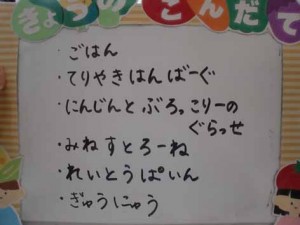 きょうのこんだて
・ごはん
・てりやきはんばーぐ
・にんじんとぶろっこりーの
ぐらっせ
・みねすとろーね
・れいとうぱいん
・ぎゅうにゅう